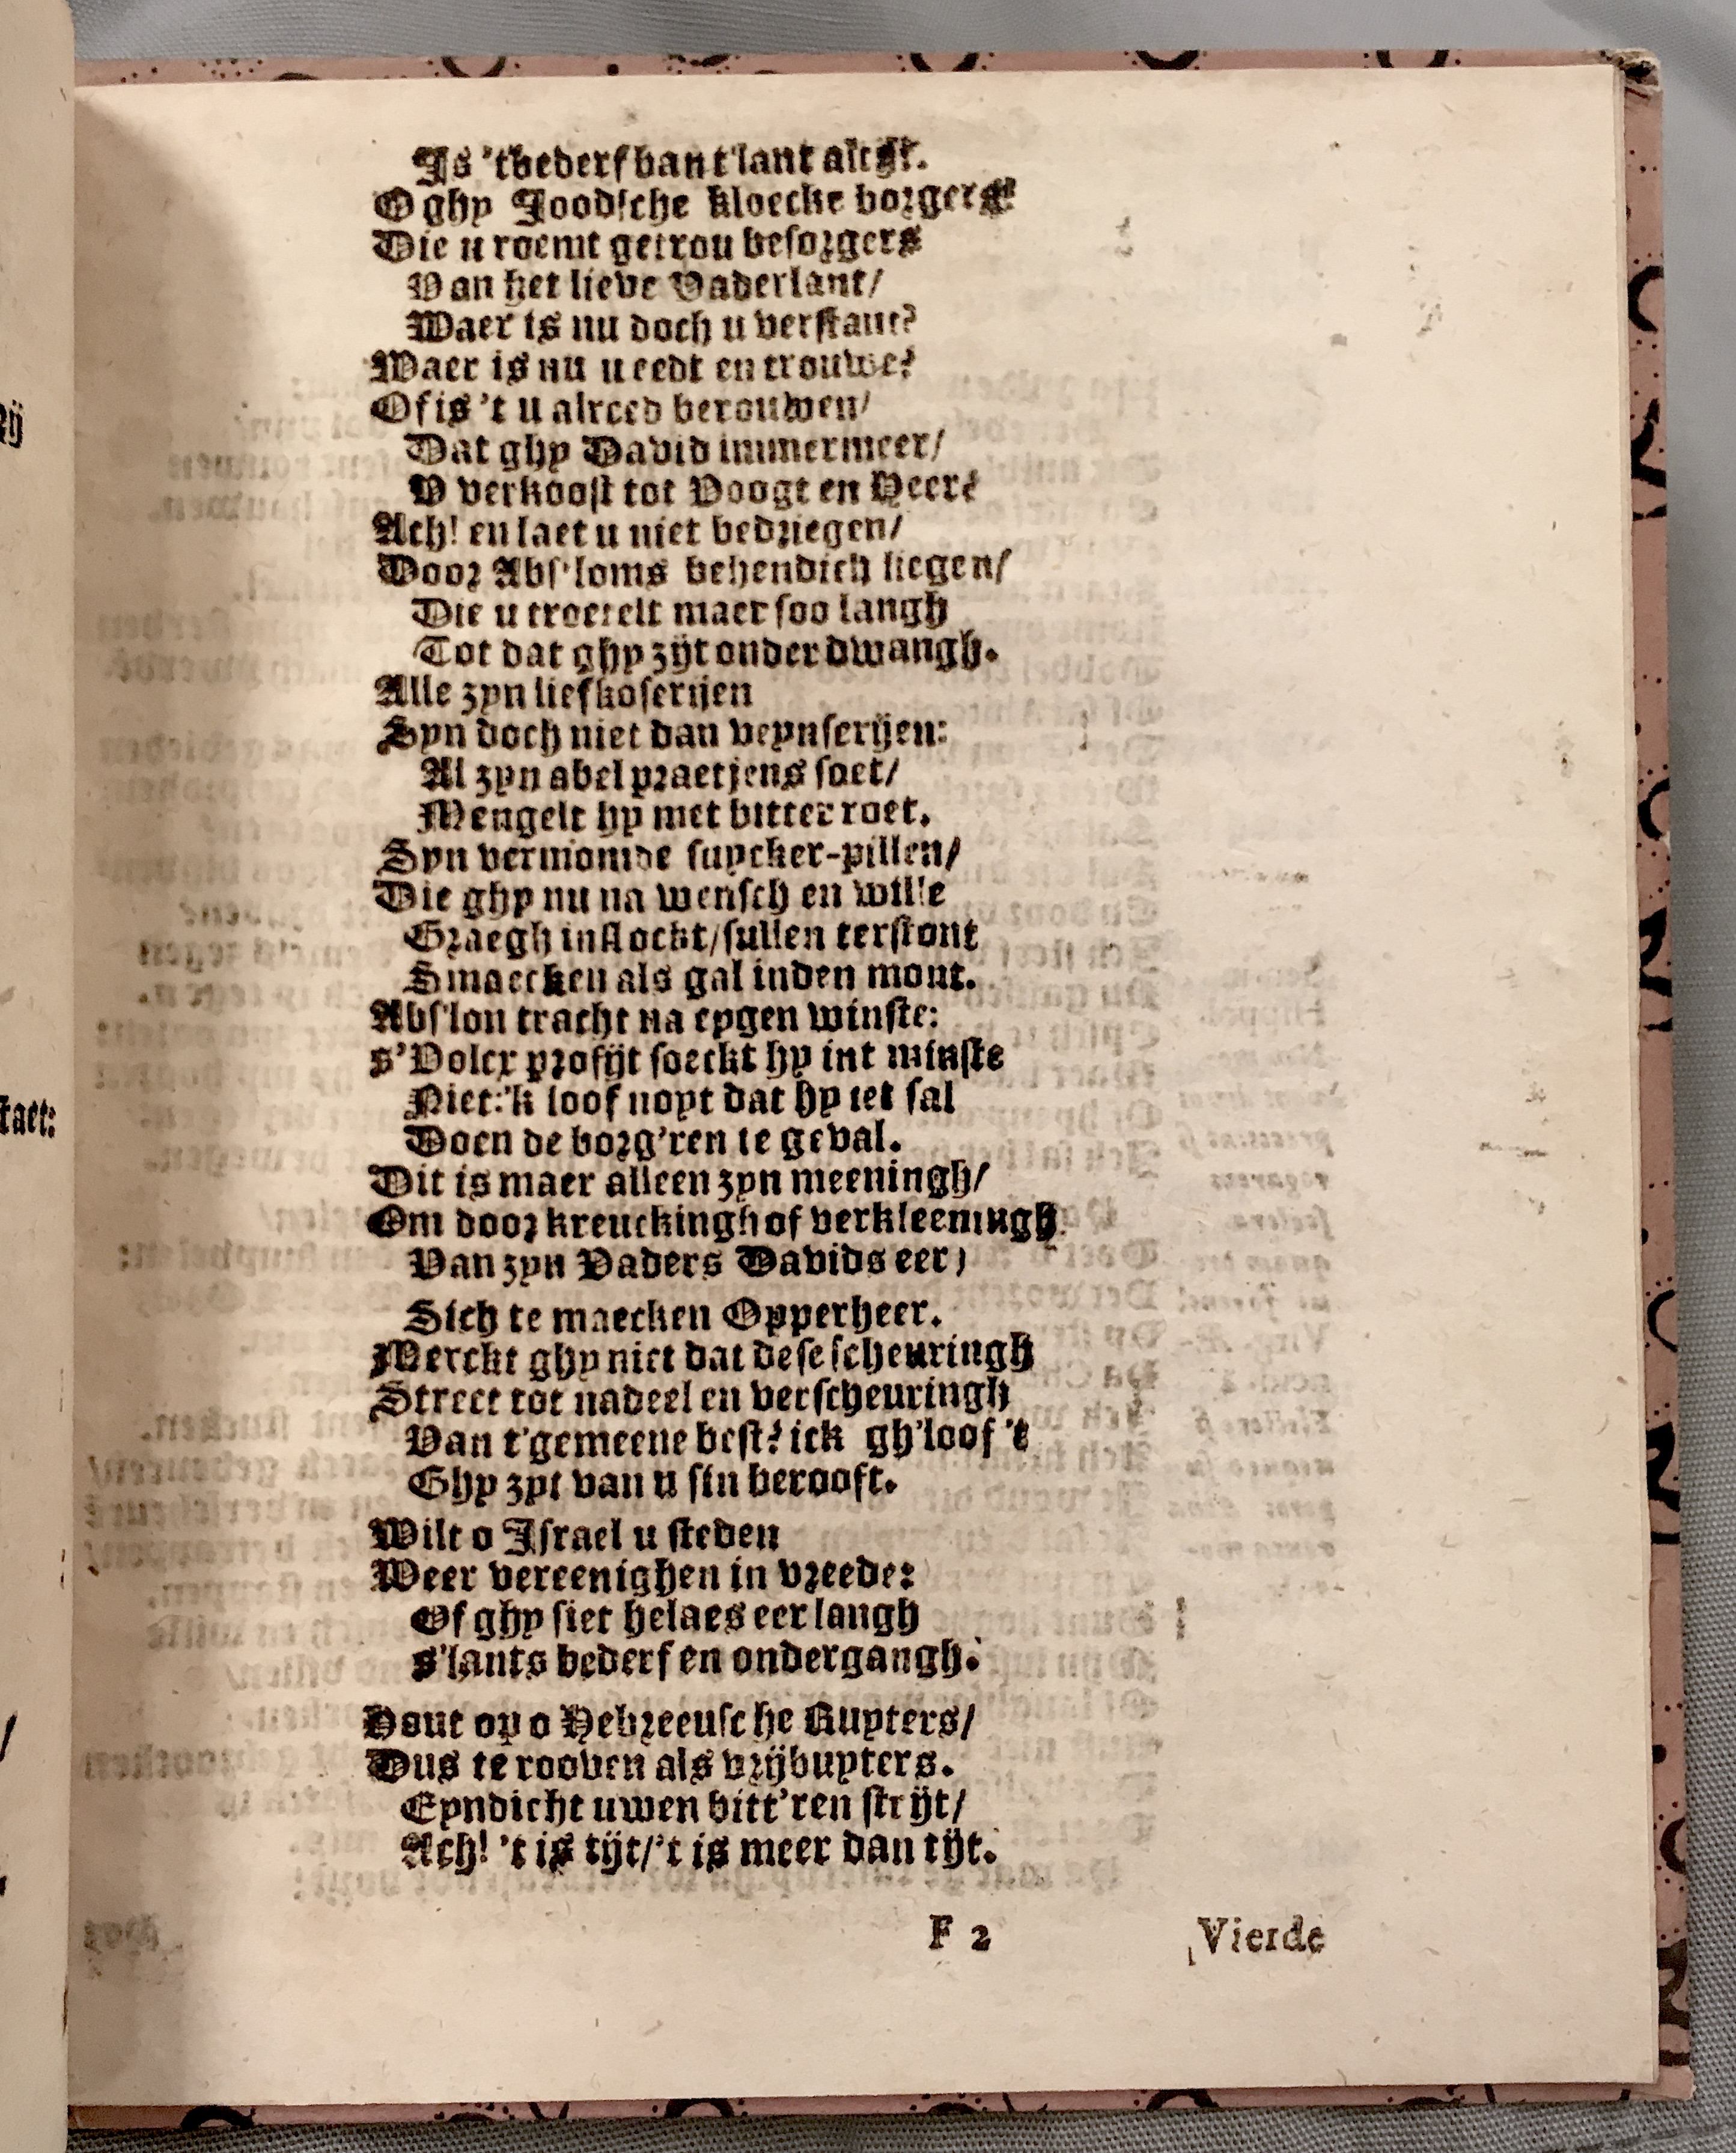 Is 'tbederf van t'lant altijt.
O ghy Joodsche kloecke borgers!
Die u roemt getrou besorgers
Van het lieve Vaderlant/
Waer is nu doch u verstant?
Waer is nu u eedt en trouwe?
Of is 't u alreed berouwen/
Dat ghy David immermeer/
V verkoost tot Voogt en Heer?
Ach! en laet u niet bedriegen/
Door Abs'loms behendich liegen/
Die u troetelt maer soo langh
Tot dat ghy zijt onder dwangh.
Alle zyn liefkoserijen
Syn doch niet dan veynserijen:
Al zyn abel praetjens soet/
Mengelt hy met bitter roet.
Syn vermomde suycker-pillen/
Die ghy nu na wensch en wille
Graegh inslockt/sullen terstont
Smaecken als gal inden mont.
Abs'lon tracht na eygen winste:
s'Volcx profijt soeckt hy int minste
Niet:'k loof noyt dat hy iet sal
Doen de borg'ren te geval.
Dit is maer alleen zyn meeningh/
Om door kreuckingh of verkleeningh
Van zyn Vaders Davids eer/
Sich te maecken Opperheer.
Merckt ghy niet dat dese scheuringh
Street tot nadeel en verscheuringh
Van t'gemeene best? ick gh'loof 't
Ghy zyt van u sin berooft.
Wilt o Israel u steden
Weer vereenighen in vreede:
Of ghy siet helaes eer langh
s'lants bederf en ondergangh.
Hout op o Hebreeusche Ruyters/
Dus te rooven als vrijbuyters.
Eyndicht uwen bitt'ren strijt/
Ach! 't is tijt/'t is meer dan tijt.
F 2
Vierde